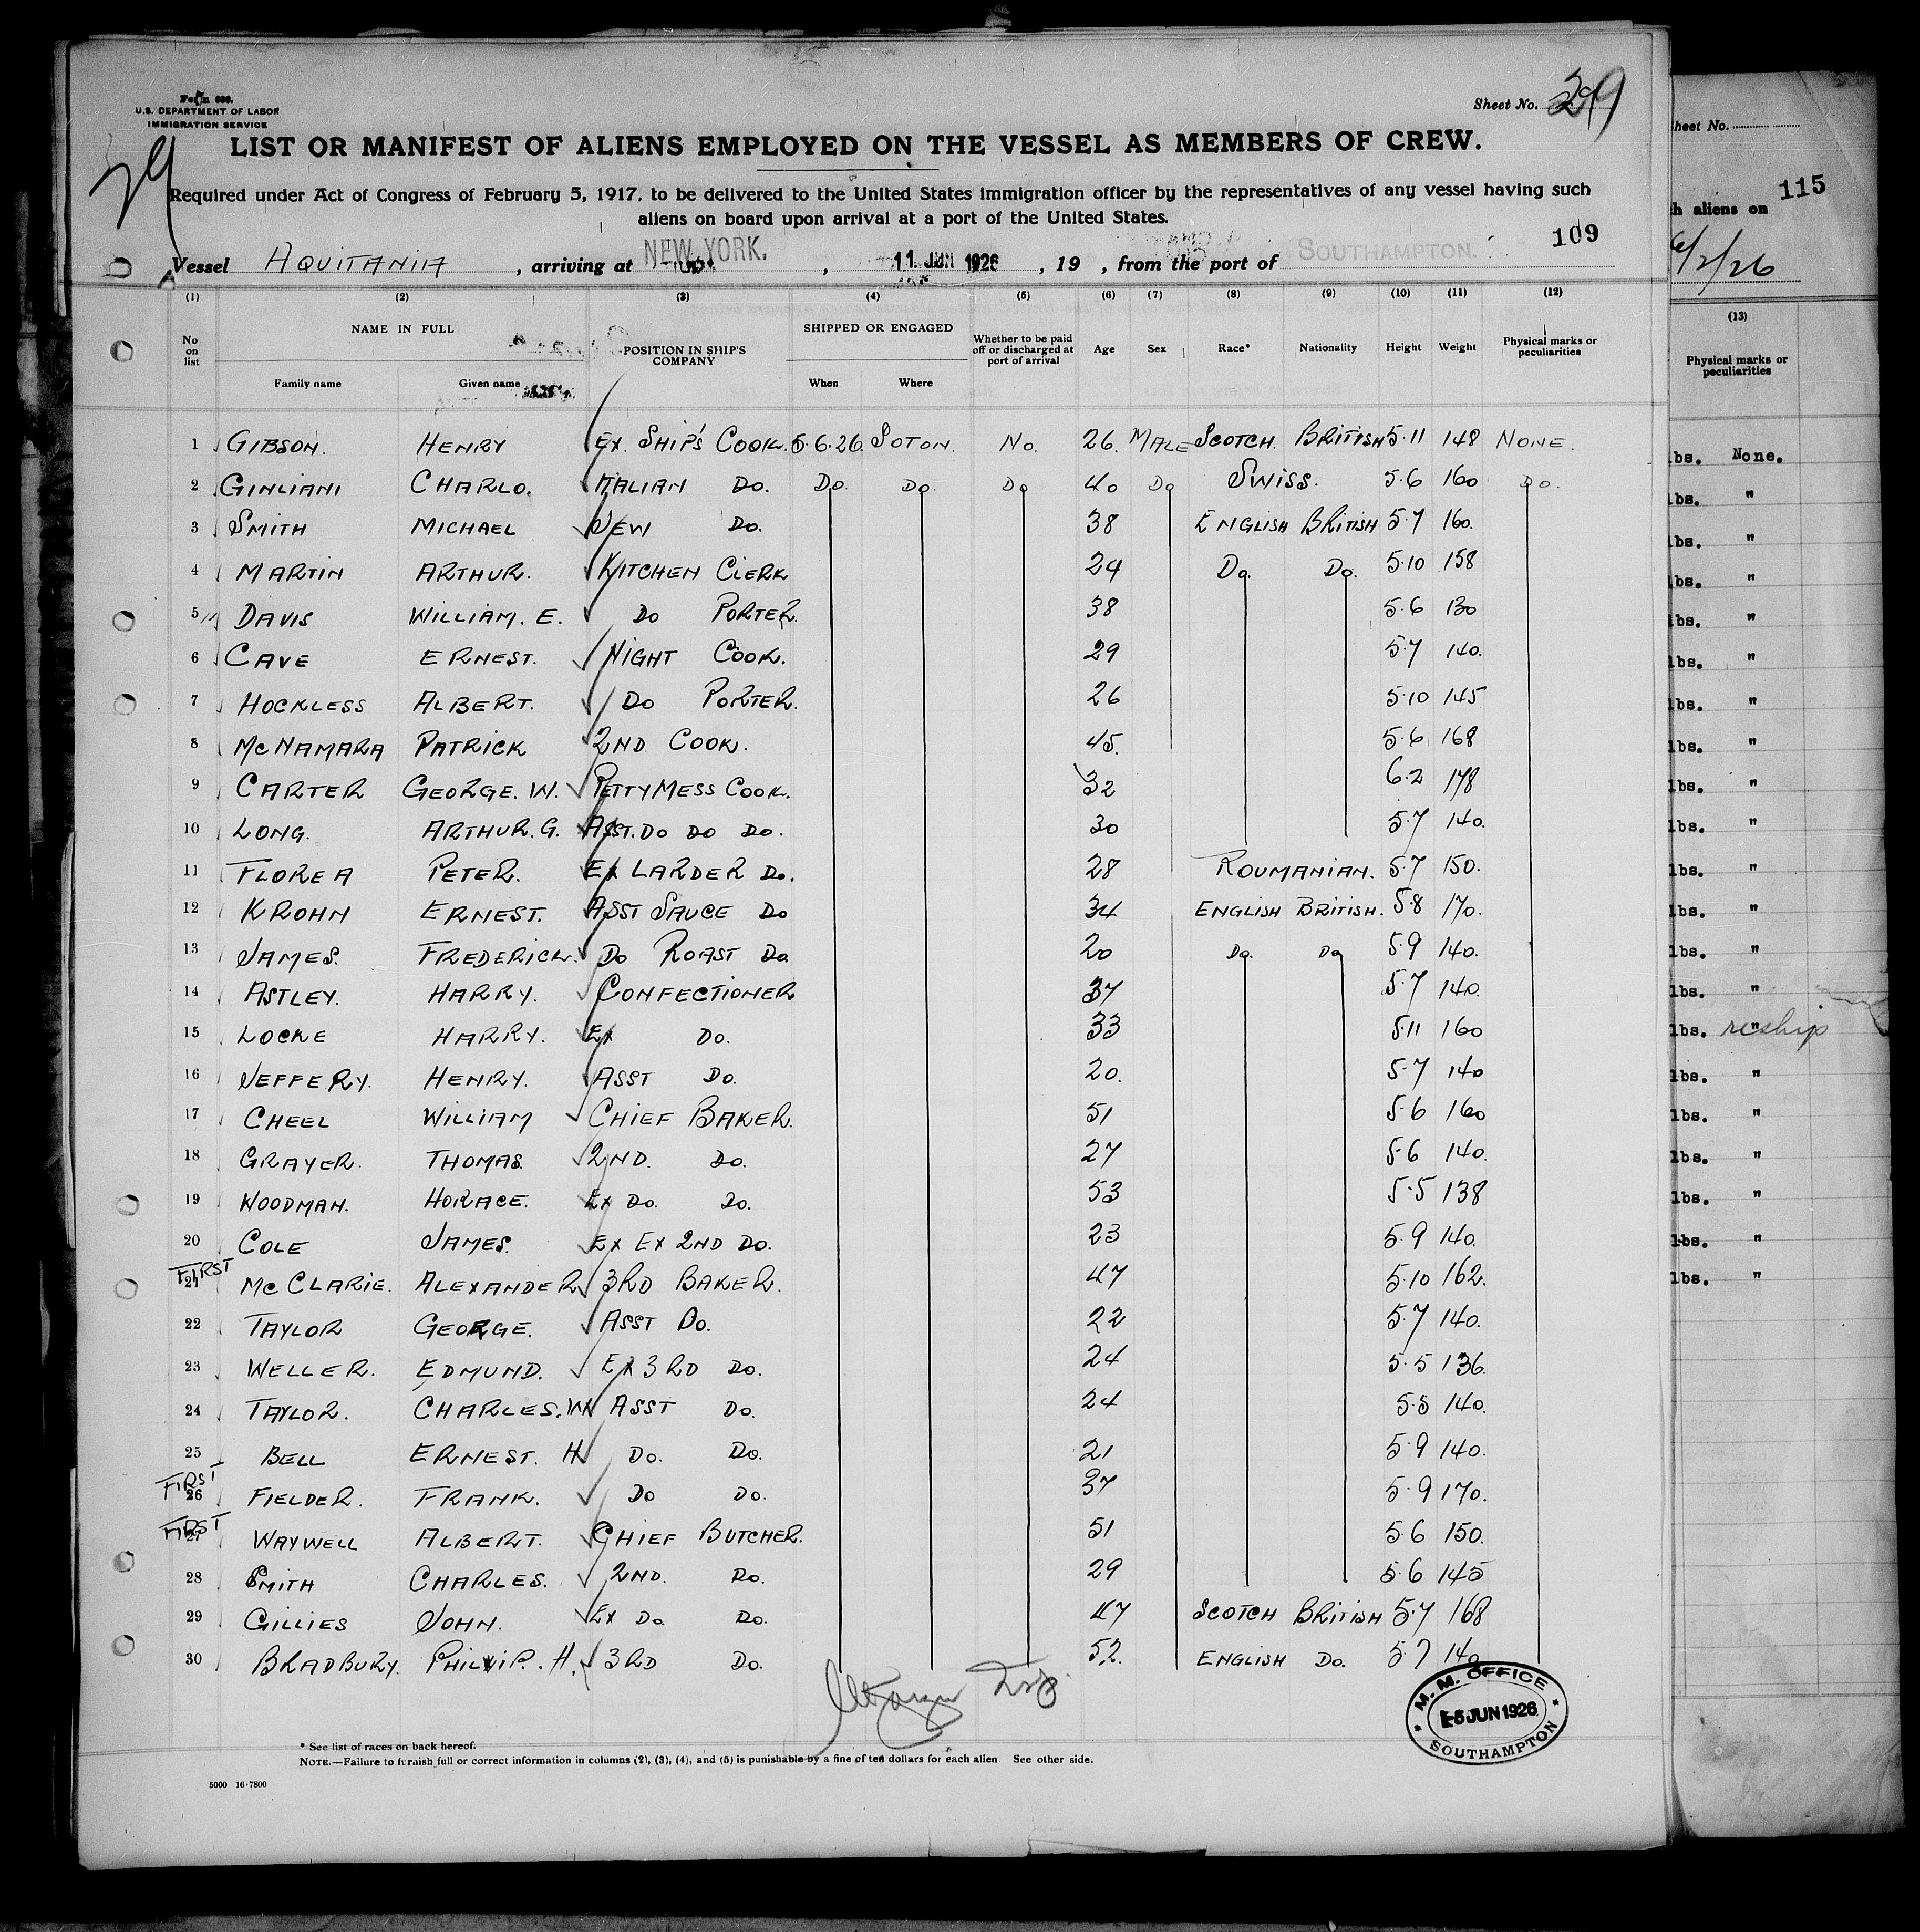 Form 686.
U.S. DEPARTMENT OF LABOR
IMMIGRATION SERVICE
Sheet No. 29
29
LIST OR MANIFEST OF ALIENS EMPLOYED ON THE VESSEL AS MEMBERS OF CREW.
Required under Act of Congress of February 5, 1917, to be delivered to the United States immigration officer by the representatives of any vessel having such
aliens on board upon arrival at a port of the United States.
109
Vessel AQUITANIA, arriving at NEW YORK., 11 JUN 1926, 19 , from the port of SOUTHAMPTON.
(1) (2) (3) (4) (5) (6) (7) (8) (9) (10) (11) (12)
No on list NAME IN FULL Family name Given name POSITION IN SHIP'S COMPANY SHIPPED OR ENGAGED When Where Whether to be paid off or discharged at port of arrival Age Sex Race* Nationality Height Weight Physical marks or peculiarities
1 GIBSON. HENRY Ex. SHIP'S COOK. 5.6.26. SOTON. No. 26. MALE SCOTCH. BRITISH 5.11 148 NONE.
2 GINLIANI CHARLO. ITALIAN Do. Do. Do. Do 40 Do SWISS. 5.6 160 Do.
3 SMITH MICHAEL JEW Do. 38 ENGLISH BRITISH 5.7 160.
4 MARTIN ARTHUR. KITCHEN CLERK 24 Do. Do. 5.10 158
5 DAVIS WILLIAM. E. Do PORTER. 38 5.6 130
6 CAVE ERNEST. NIGHT COOK. 29 5.7 140.
7 HOCKLESS ALBERT. Do PORTER. 26 5.10 145
8 McNAMARA PATRICK 2ND COOK. 45. 5.6 168
9 CARTER GEORGE. W. PETTY MESS COOK. 32 6.2 178
10 LONG. ARTHUR. G. ASST. Do Do Do. 30 5.7 140.
11 FLOREA PETER. Ex LARDER Do. 28 ROUMANIAN. 5.7 150.
12 KROHN ERNEST. ASST SAUCE Do 34 ENGLISH BRITISH. 5.8 170.
13 JAMES. FREDERICK. Do ROAST Do. 20 Do. Do 5.9 140.
14 ASTLEY. HARRY. CONFECTIONER 37 5.7 140.
15 LOCKE HARRY. Ex Do. 33 5.11 160
16 JEFFERY. HENRY. ASST Do. 20. 5.7 140
17 CHEEL WILLIAM CHIEF BAKER. 51 5.6 160
18 GRAYER. THOMAS. 2ND. Do. 27 5.6 140.
19 WOODMAN. HORACE. Ex Do. Do. 53 5.5 138
20 COLE JAMES. Ex Ex 2ND Do. 23 5.9 140.
FIRST
21 McCLARIE. ALEXANDER 3RD BAKER. 47 5.10 162.
22 TAYLOR GEORGE. ASST Do. 22 5.7 140.
23 WELLER. EDMUND. Ex 3RD Do. 24 5.5 136.
24 TAYLOR. CHARLES. W. ASST Do. 24 5.5 140.
25 BELL ERNEST. H Do. Do. 21 5.9 140.
FIRST
26 FIELDER. FRANK. Do Do. 37 5.9 170.
FIRST
27 WAYWELL ALBERT. CHIEF BUTCHER. 51 5.6 150.
28 SMITH CHARLES. 2ND. Do. 29 5.6 145
29 GILLIES JOHN. Ex Do. Do. 47 SCOTCH BRITISH 5.7 168
30 BRADBURY. PHILIP. H. 3RD Do. 52. ENGLISH Do. 5.7 140
M. M. OFFICE
5 JUN 1926
SOUTHAMPTON
* See list of races on back hereof.
NOTE.—Failure to furnish full or correct information in columns (2), (3), (4), and (5) is punishable by a fine of ten dollars for each alien See other side.
5000 16-7800
Sheet No.
115
aliens on
6/2/26
(13)
Physical marks or
peculiarities
lbs. None.
lbs. "
lbs. "
lbs. "
lbs. "
lbs. "
lbs. "
lbs. "
lbs. "
lbs. "
lbs. "
lbs. "
lbs. "
lbs. "
lbs. " reship
lbs. "
lbs. "
lbs. "
lbs. "
lbs. "
lbs. "